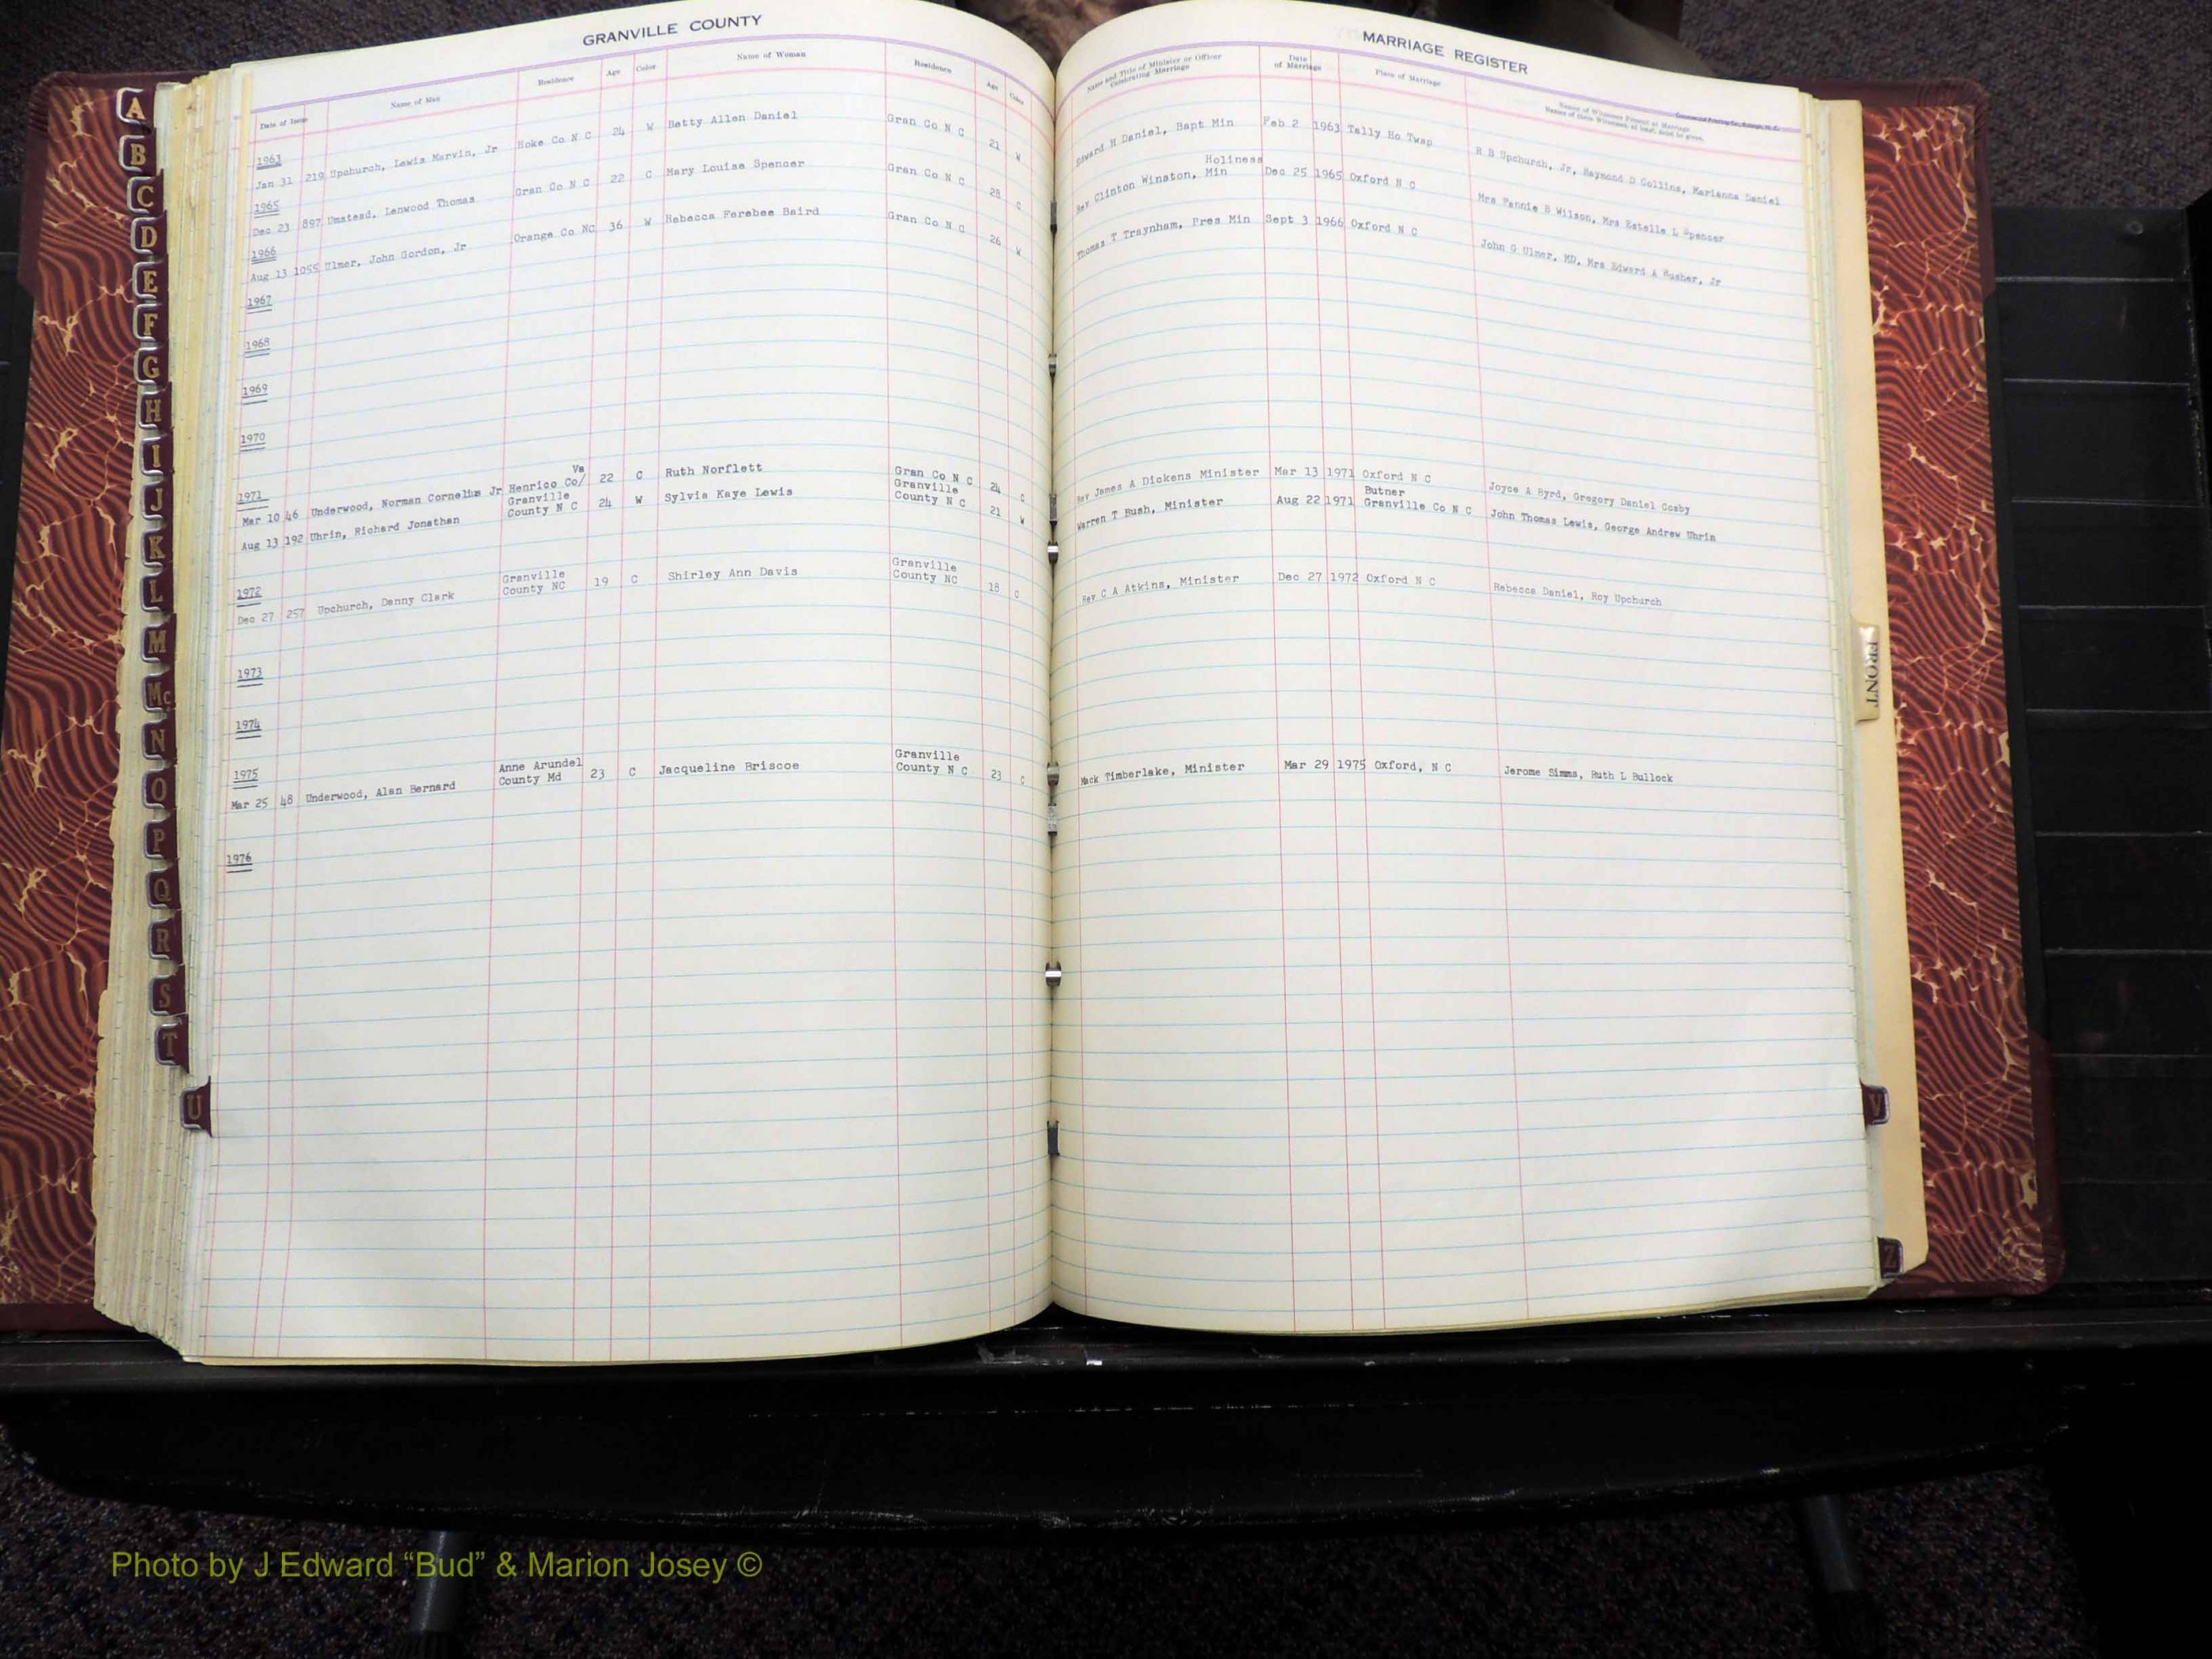 GRANVILLE COUNTY
Date of Issue Name of Man Residence Age Color Name of Woman Residence Age Color
1963
Jan 31 219 Upchurch, Lewis Marvin, Jr Hoke Co N C 24 W Betty Allen Daniel Gran Co N C 21 W
1965
Dec 23 897 Umstead, Lenwood Thomas Gran Co N C 22 C Mary Louise Spencer Gran Co N C 28 C
1966
Aug 13 1055 Ulmer, John Gordon, Jr Orange Co NC 36 W Rebecca Ferebee Baird Gran Co N C 26 W
1967
1968
1969
1970
1971
Va
Mar 10 46 Underwood, Norman Cornelius Jr Henrico Co/ 22 C Ruth Norflett Gran Co N C 24 C
Granville Granville
Aug 13 192 Uhrin, Richard Jonathan County N C 24 W Sylvia Kaye Lewis County N C 21 W
1972
Granville Granville
Dec 27 257 Upchurch, Denny Clark County NC 19 C Shirley Ann Davis County NC 18 C
1973
1974
1975
Anne Arundel Granville
Mar 25 48 Underwood, Alan Bernard County Md 23 C Jacqueline Briscoe County N C 23 C
1976
MARRIAGE REGISTER
Name and Title of Minister or Officer Celebrating Marriage Date of Marriage Place of Marriage Names of Witnesses Present at Marriage
Names of three Witnesses, at least, must be given.
Commercial Printing Co., Raleigh, N. C.
Edward H Daniel, Bapt Min Feb 2 1963 Tally Ho Twsp R B Upchurch, Jr, Raymond D Collins, Marianna Daniel
Holiness
Rev Clinton Winston, Min Dec 25 1965 Oxford N C Mrs Fannie B Wilson, Mrs Estelle L Spencer
Thomas T Traynham, Pres Min Sept 3 1966 Oxford N C John G Ulmer, MD, Mrs Edward A Rusher, Jr
Rev James A Dickens Minister Mar 13 1971 Oxford N C Joyce A Byrd, Gregory Daniel Cosby
Butner
Warren T Bush, Minister Aug 22 1971 Granville Co N C John Thomas Lewis, George Andrew Uhrin
Rev C A Atkins, Minister Dec 27 1972 Oxford N C Rebecca Daniel, Roy Upchurch
Mack Timberlake, Minister Mar 29 1975 Oxford, N C Jerome Simms, Ruth L Bullock
A
B
C
D
E
F
G
H
I
J
K
L
M
Mc
N
O
P
Q
R
S
T
U
FRONT
V
Z
Photo by J Edward “Bud” & Marion Josey ©